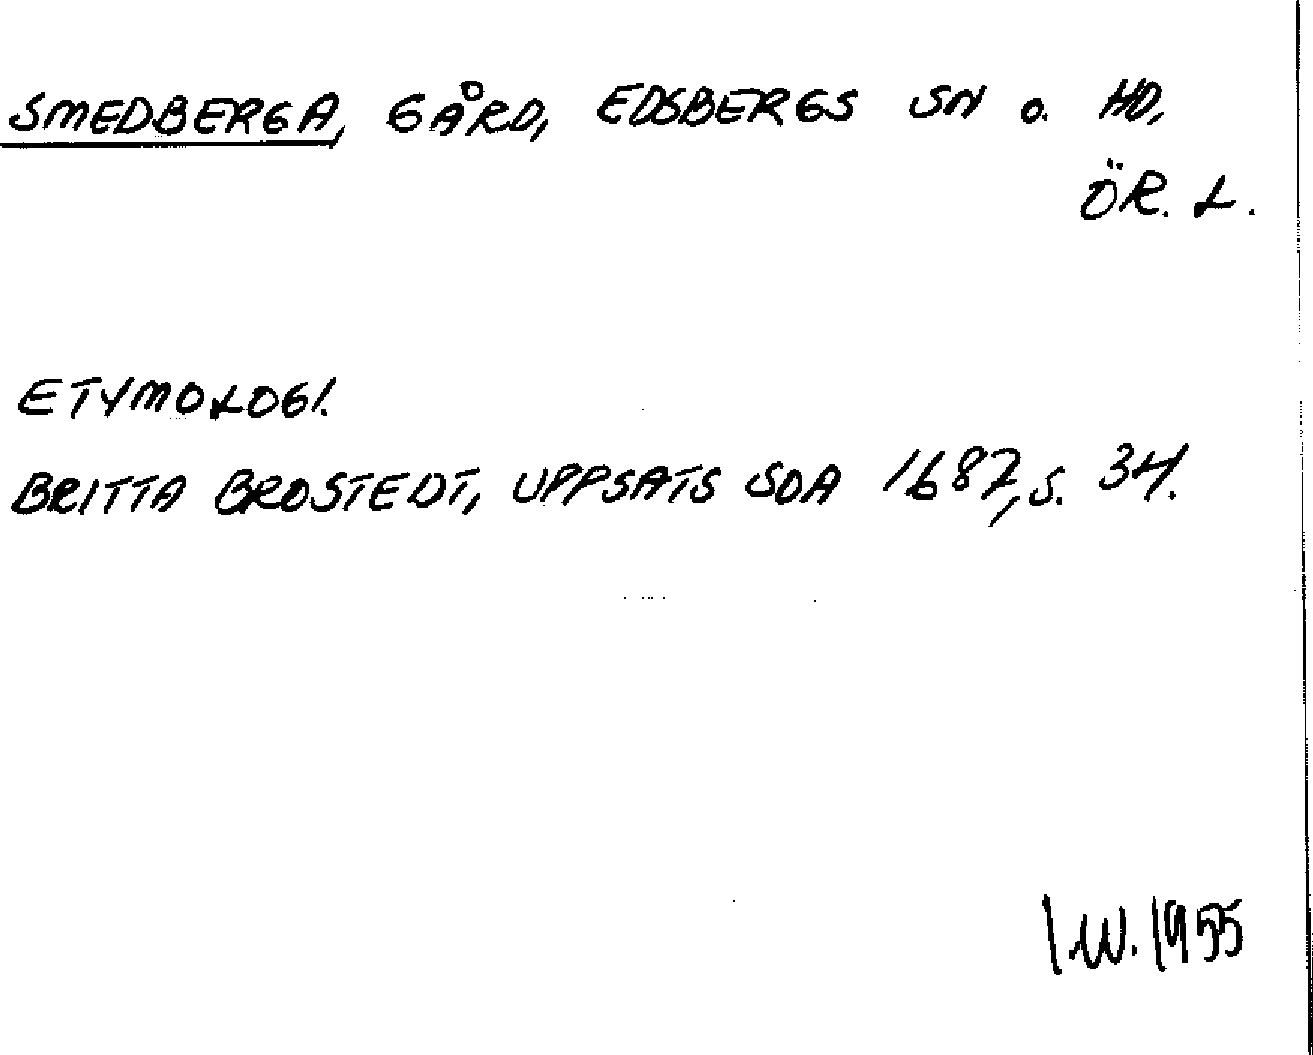 SMEDBERGA, GÅRD, EDSBERGS SN o. HD,
ÖR. L.
ETYMOLOGI.
BRITTA BROSTEDT, UPPSATS SOA 1687, S. 34.
I.W. 1955